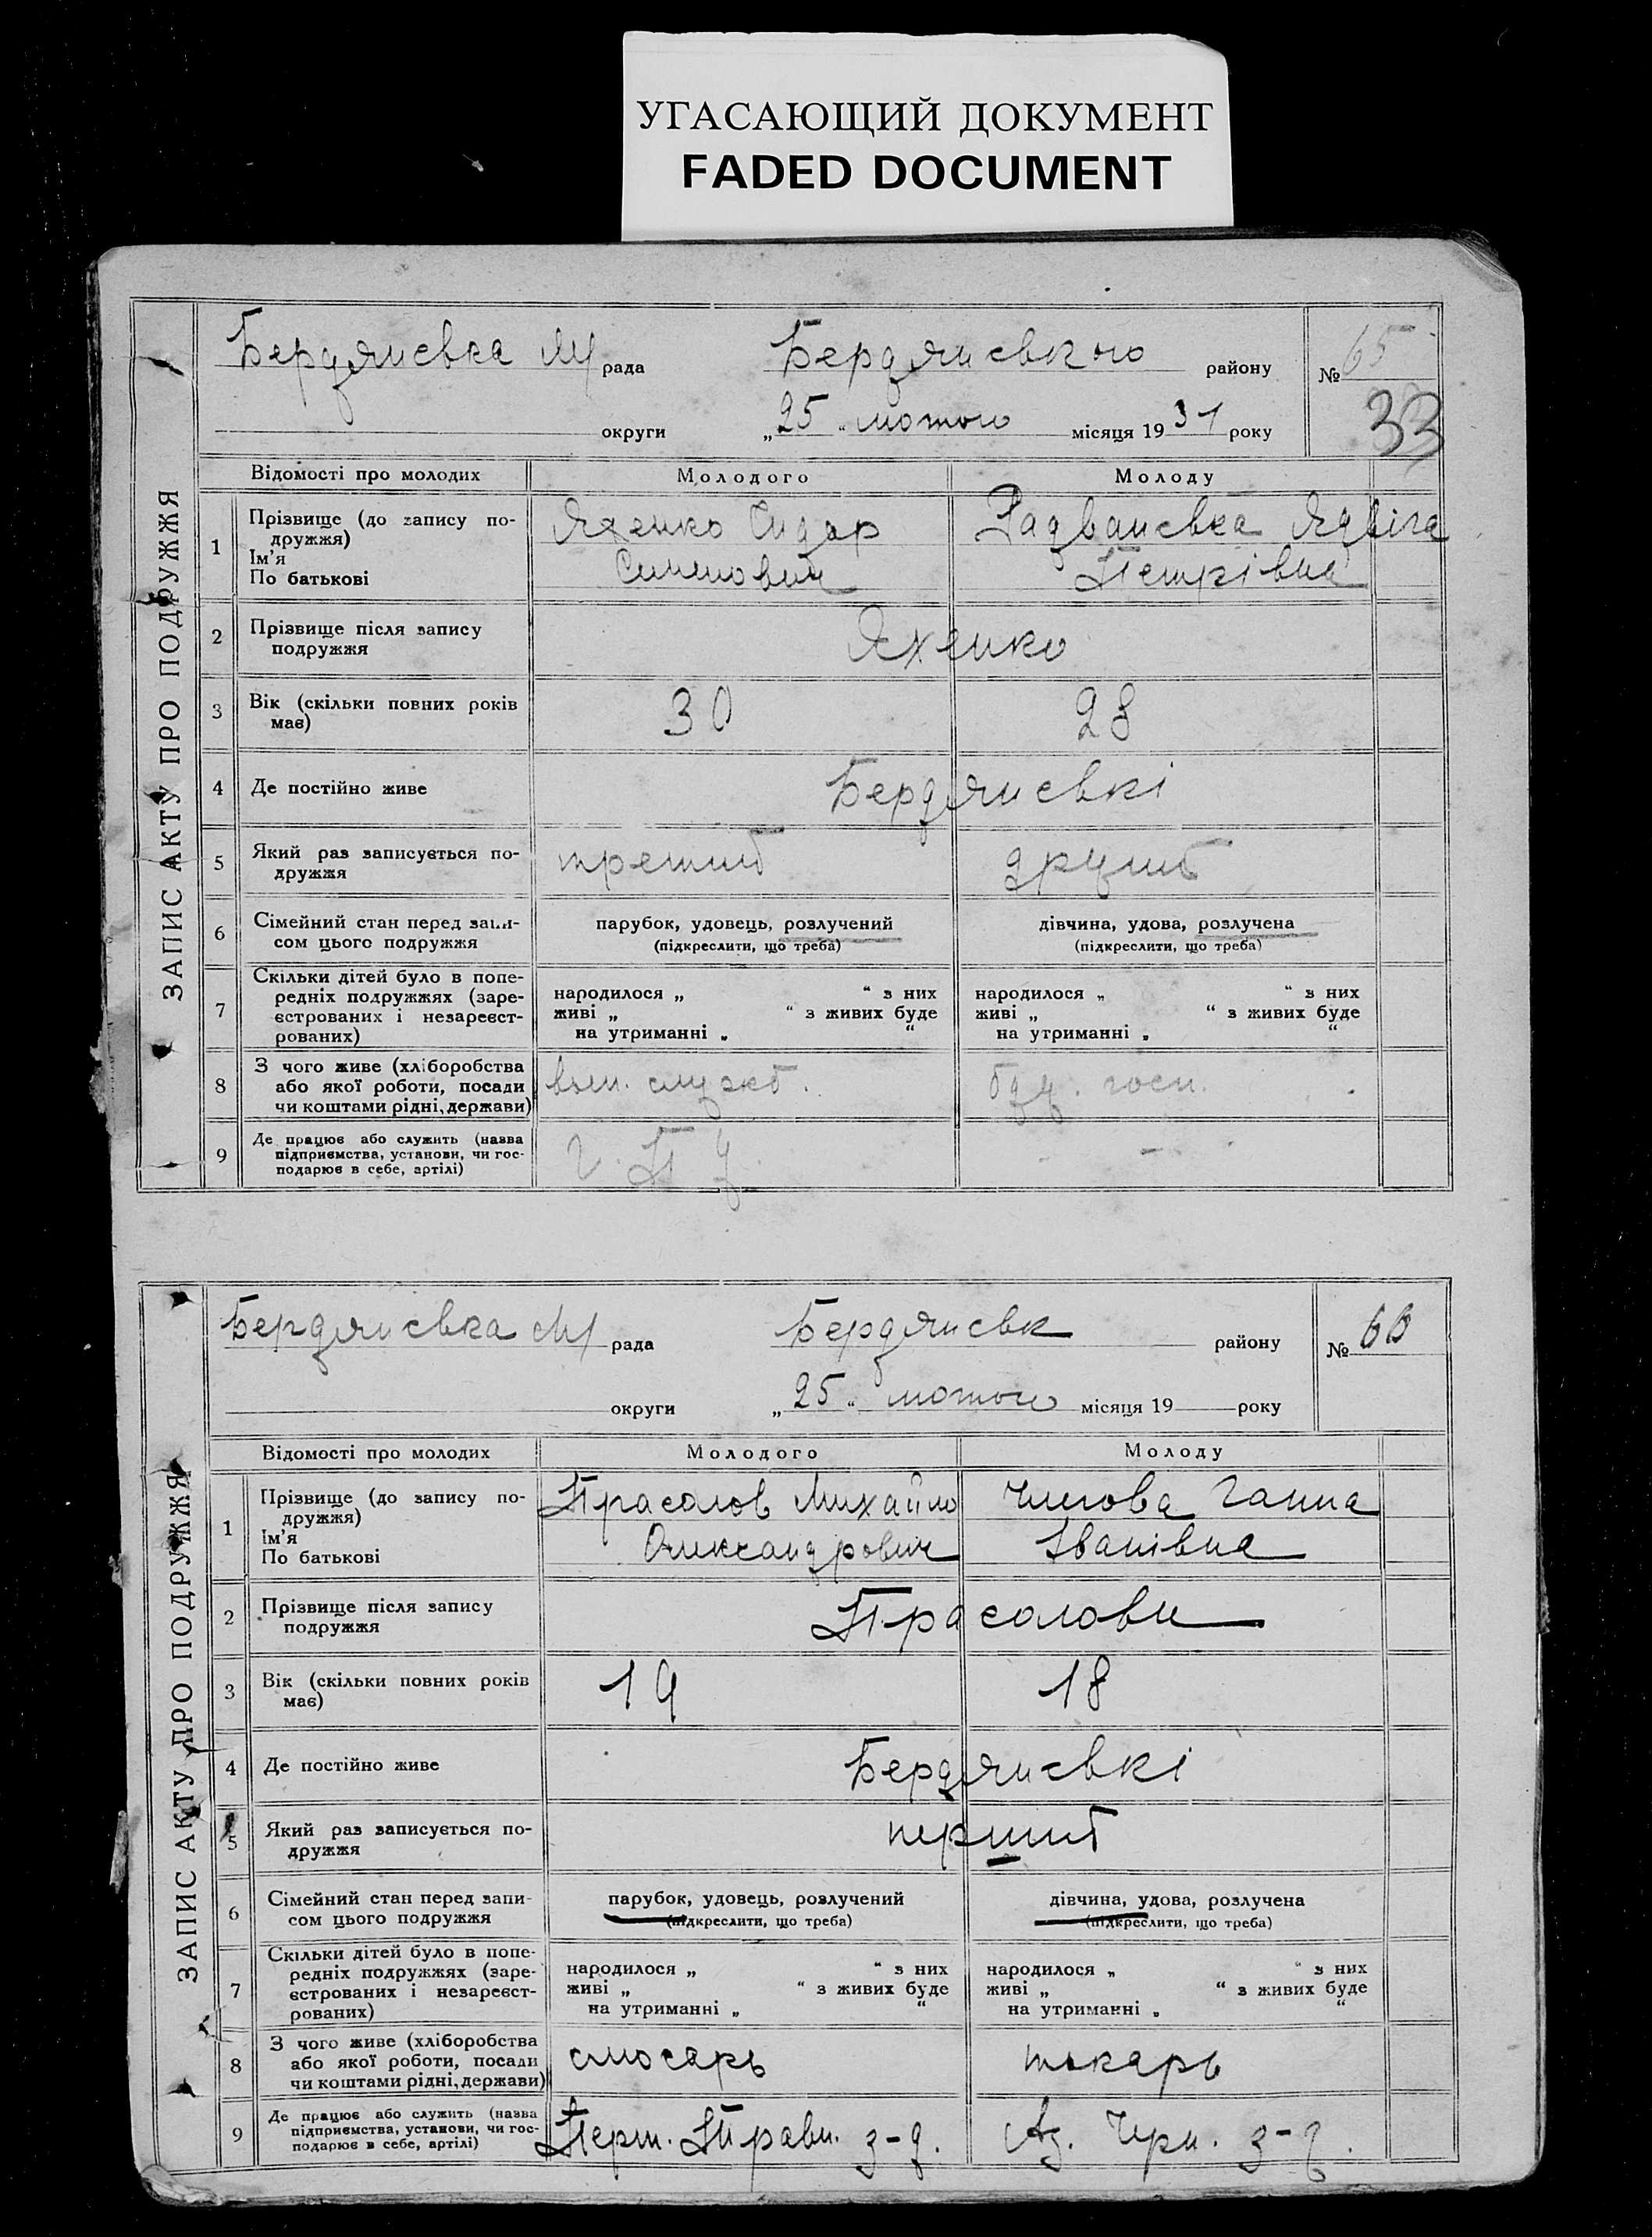 УГАСАЮЩИЙ ДОКУМЕНТ
FADED DOCUMENT
ЗАПИС АКТУ ПРО ПОДРУЖЖЯ
Бердянська м/ рада Бердянського району № 65
округи „25“ лютого місяця 1931 року 33
Відомості про молодих Молодого Молоду
1 Прізвище (до запису подружжя) Яхенко Сидор Радванська Ядвіга
Ім'я
По батькові Симонович Петрівна
2 Прізвище після запису подружжя Яхенко
3 Вік (скільки повних років має) 30 28
4 Де постійно живе Бердянські
5 Який раз записується подружжя третий другий
6 Сімейний стан перед записом цього подружжя парубок, удовець, розлучений дівчина, удова, розлучена
(підкреслити, що треба) (підкреслити, що треба)
7 Скільки дітей було в попередніх подружжях (зареєстрованих і незареєстрованих) народилося „ “ з них народилося „ “ з них
живі „ “ з живих буде живі „ “ з живих буде
на утриманні „ “ на утриманні „ “
8 З чого живе (хліборобства або якої роботи, посади чи коштами рідні, держави) служб. госп.
9 Де працює або служить (назва підприємства, установи, чи господарює в себе, артілі) Г.П.У. -
ЗАПИС АКТУ ПРО ПОДРУЖЖЯ
Бердянська м/ рада Бердянськ району № 66
округи „25“ лютого місяця 19 року
Відомості про молодих Молодого Молоду
1 Прізвище (до запису подружжя) Прасолов Михайло Ганна
Ім'я
По батькові Олександрович Іванівна
2 Прізвище після запису подружжя Прасолови
3 Вік (скільки повних років має) 19 18
4 Де постійно живе Бердянські
5 Який раз записується подружжя перший
6 Сімейний стан перед записом цього подружжя парубок, удовець, розлучений дівчина, удова, розлучена
(підкреслити, що треба) (підкреслити, що треба)
7 Скільки дітей було в попередніх подружжях (зареєстрованих і незареєстрованих) народилося „ “ з них народилося „ “ з них
живі „ “ з живих буде живі „ “ з живих буде
на утриманні „ “ на утриманні „ “
8 З чого живе (хліборобства або якої роботи, посади чи коштами рідні, держави) слюсарь токарь
9 Де працює або служить (назва підприємства, установи, чи господарює в себе, артілі) Перш. Травн. з-д. Аз. Чрн. з-д.